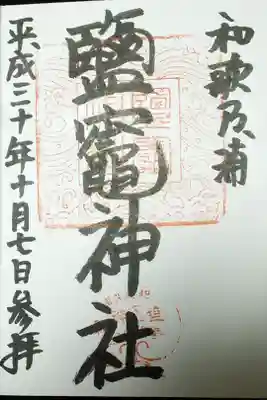 和歌の浦
鹽竈神社
平成三十年十月七日参拝